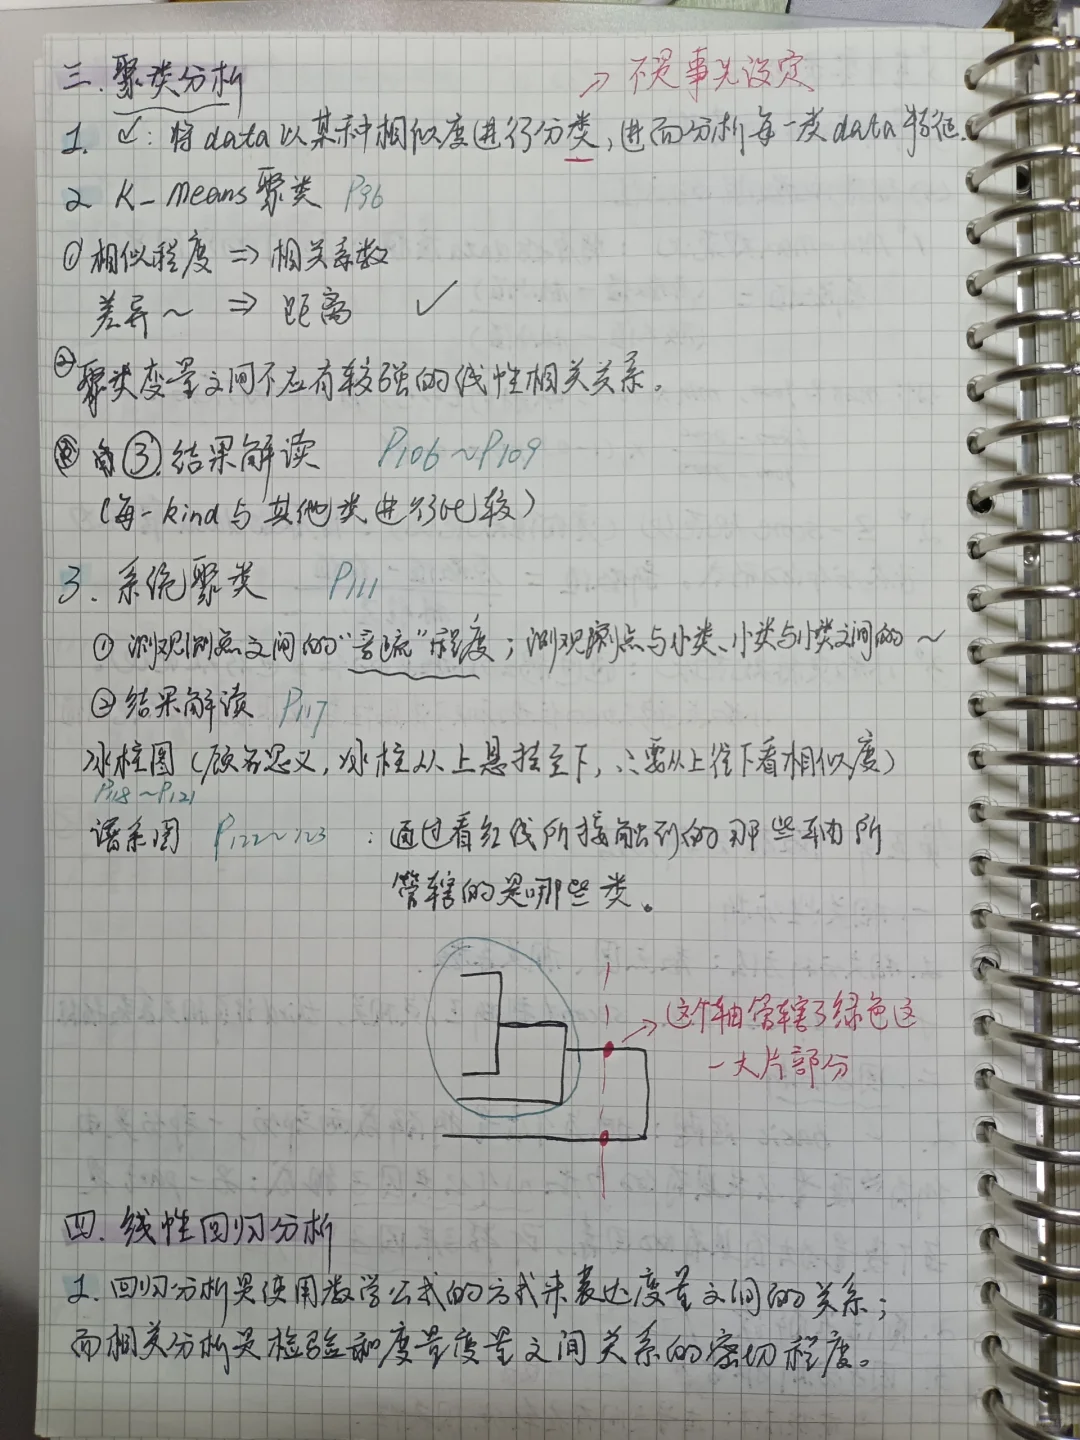 三. 聚类分析
→ 不是事先设定
1. ∠: 将data以某种相似度进行分类, 进而分析每一类data特征.
2 K-means聚类 P96
① 相似程度 ⇒ 相关系数
差异~ ⇒ 距离 ✓
② 聚类变量之间不应有较强的线性相关关系。
③.结果解读 P106~P109
(每一kind与其他类进行比较)
3. 系统聚类 P111
① 测观测点之间的"亲疏"程度; 测观测点与小类、小类与小类之间的~
② 结果解读 P117
冰柱图 (顾名思义, 冰柱从上悬挂至下, 只需从上往下看相似度)
P118~P121
谱系图 P122~123 : 通过看红线所接触到的那些轴所
管辖的是哪些类。
→ 这个轴管辖了绿色这
一大片部分
四. 线性回归分析
1. 回归分析是使用数学公式的方式来表达变量之间的关系;
而相关分析是检验和度量变量之间关系的密切程度。